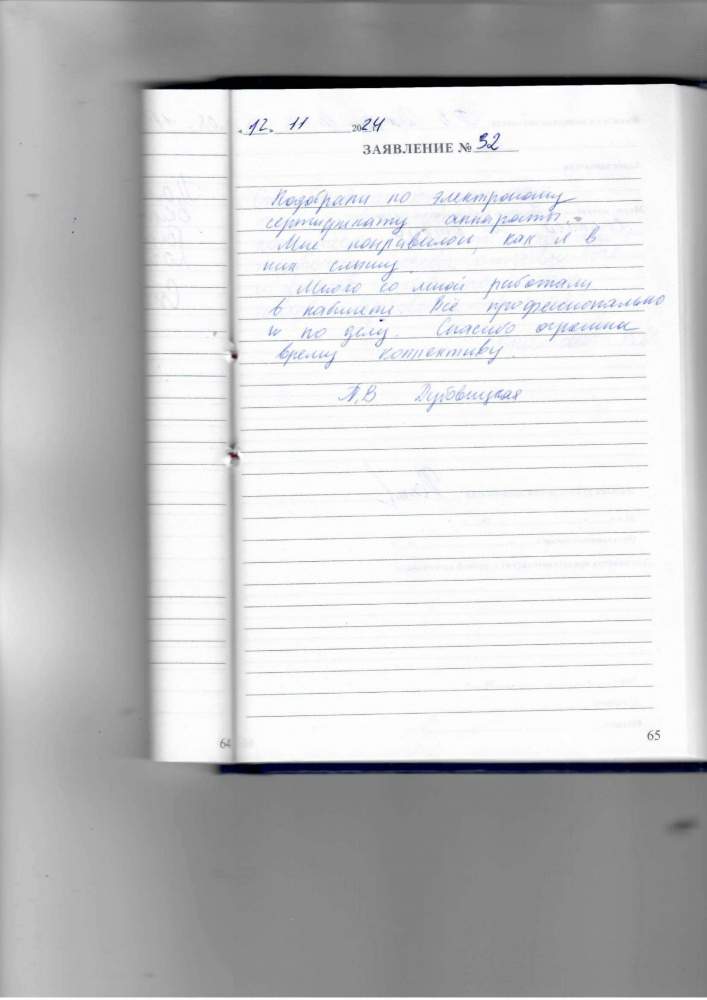 «12» 11 2024
ЗАЯВЛЕНИЕ № 32
Подобрали по электроному
сертификату аппараты.
Мне понравилось, как я в
них слышу.
Много со мной работали
в кабинете. Всё профессионально
и по делу. Спасибо огромное
всему коллективу.
Т.В Дубовицкая
64
65